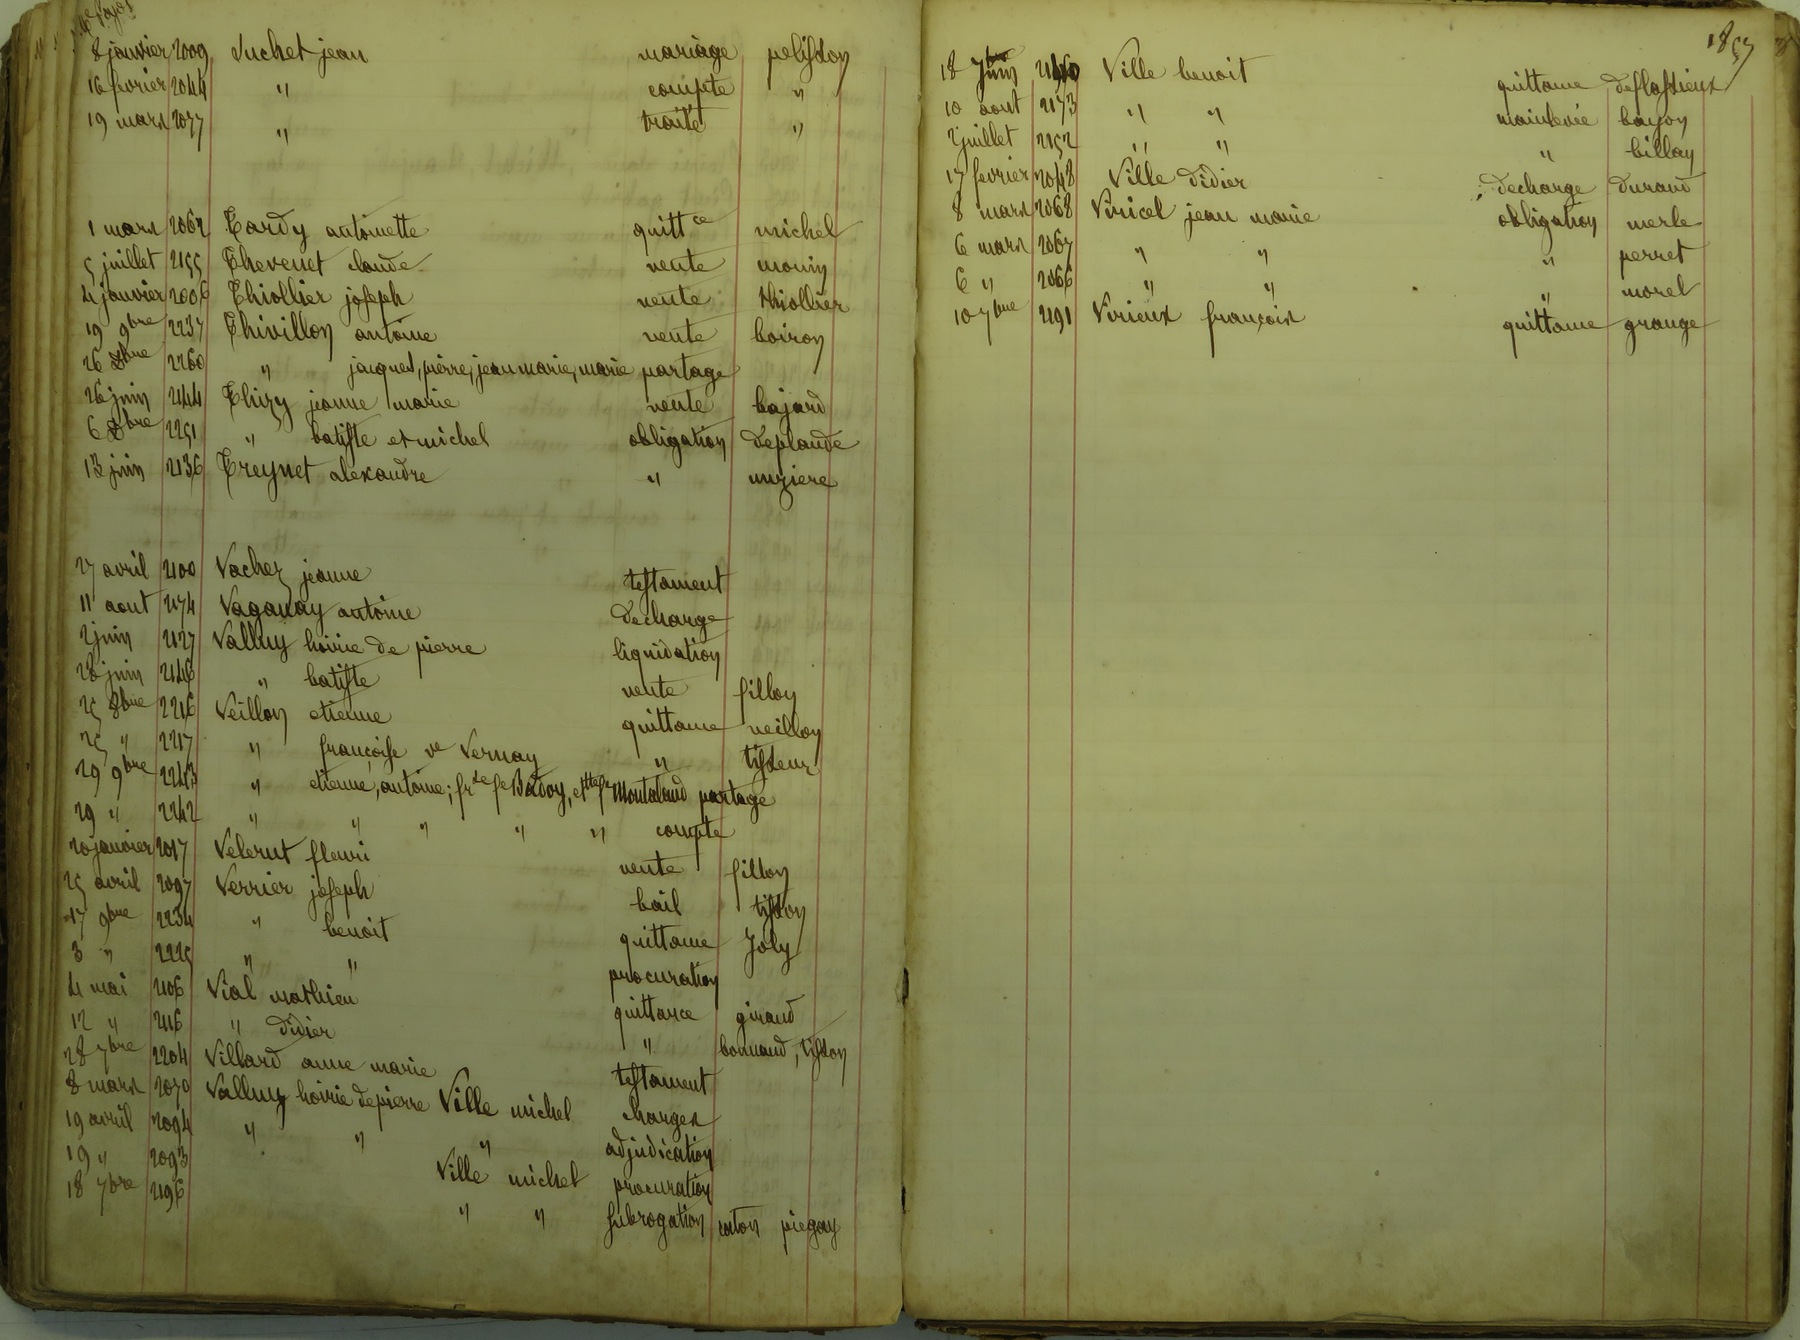 8 janvier 2009 Suchet jean mariage pelisson
16 fevrier 2044 " compte "
19 mars 2077 " traité "
1 mars 2062 Tardy antoinette quitt ce michel
5 juillet 2155 Thevenet claude vente
4 janvier 2006 Thiollier joseph vente thiollier
19 9bre 2237 Thivillon antoine vente boiron
26 Xbre 2260 " jacques, pierre, jean marie, marie partage
26 juin 2144 Thizy jeanne marie vente bajard
6 Xbre 2251 " batiste et michel obligation deplaude
13 juin 2136 Treynet alexandre " unziere
27 avril 2100 Vachez jeanne testament
11 aout 2174 Vaganay antoine decharge
2 juin 2127 Valluy hoirie de pierre liquidation
28 juin 2146 " batiste vente fillon
25 8bre 2216 Veillon etienne quittance veillon
25 " 2217 " françoise ve Vernay " tisseur
29 9bre 2243 " etienne, antoine; partage
29 " 2242 " " " " " compte
20 janvier 2017 Velerut fleuri vente fillon
25 avril 2097 Verrier joseph bail tisson
17 9bre 2234 " benoit quittance Joly
3 " 2225 " " procuration
4 mai 2106 Vial mathieu quittance giraud
12 " 2116 " didier " bonnaud, tisson
28 7bre 2204 Villard anne marie testament
8 mars 2070 Valluy hoirie de pierre Ville michel charges
19 avril 2094 " " " adjudication
19 " 2093 Ville michel procuration
18 7bre 2196 " " subrogation piegay
1857
18 juin 2140 Ville benoit quittance deflassieux
10 aout 2173 " " mainlevée bayon
2 juillet 2152 " " " billay
17 fevrier 2048 Ville didier decharge durand
8 mars 2068 Viricel jean marie obligation merle
6 mars 2067 " " " perret
6 " 2066 " " " morel
10 7bre 2191 Virieux françois quittance grange